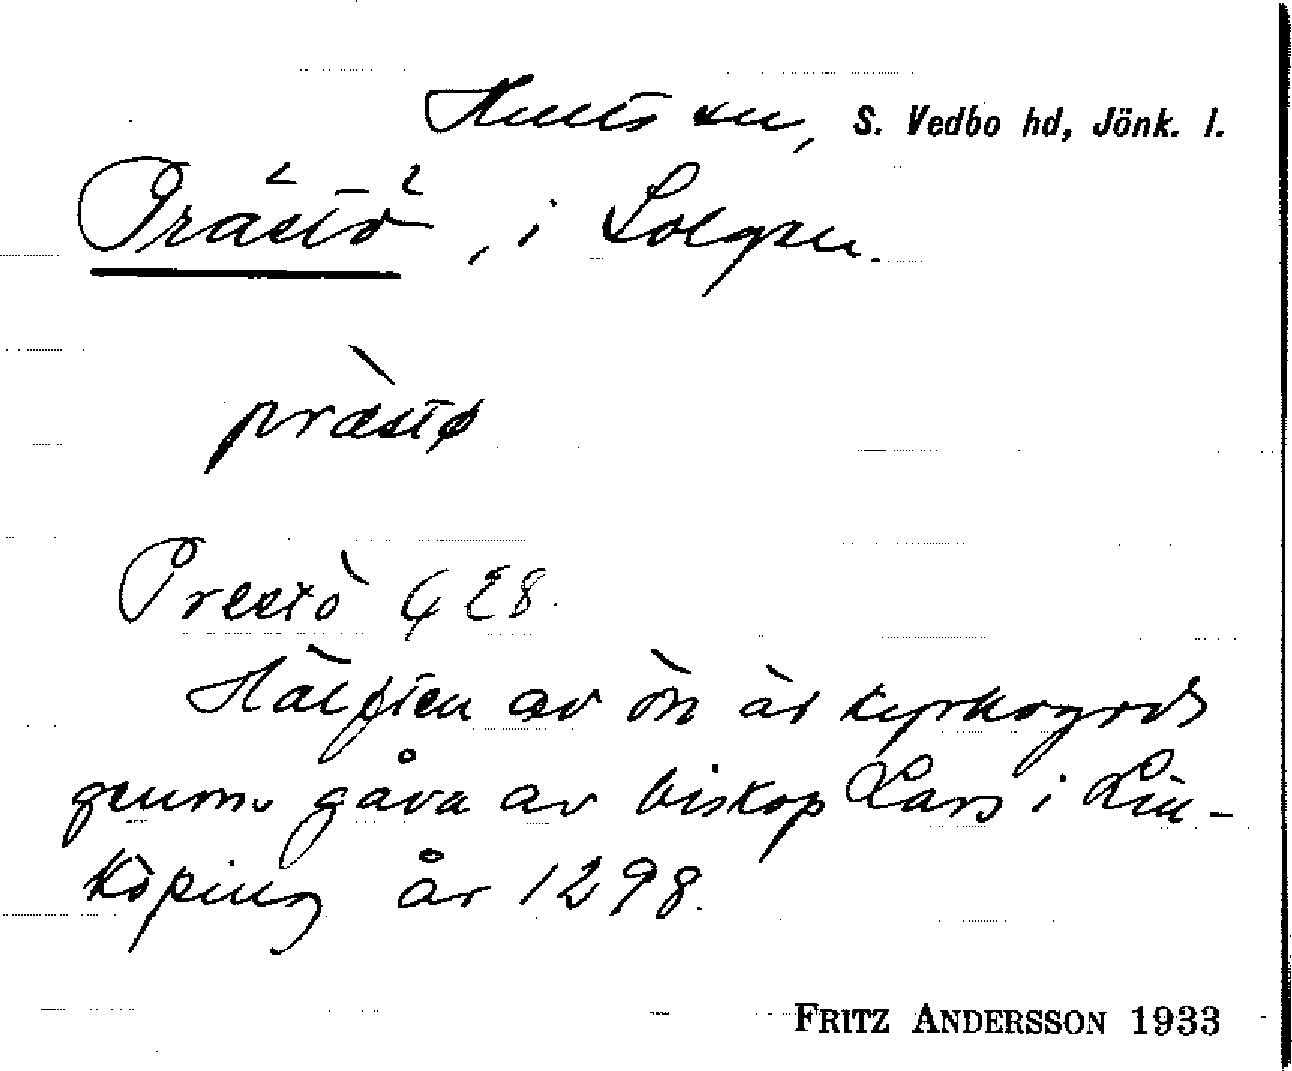 Hults sn, S. Vedbo hd, Jönk. l.
Prästö, i Solgen.
præstø
Prestö GES.
Hälften av ön är kyrkogods
genom gåva av biskop Lars i Lin-
köping år 1298.
FRITZ ANDERSSON 1933